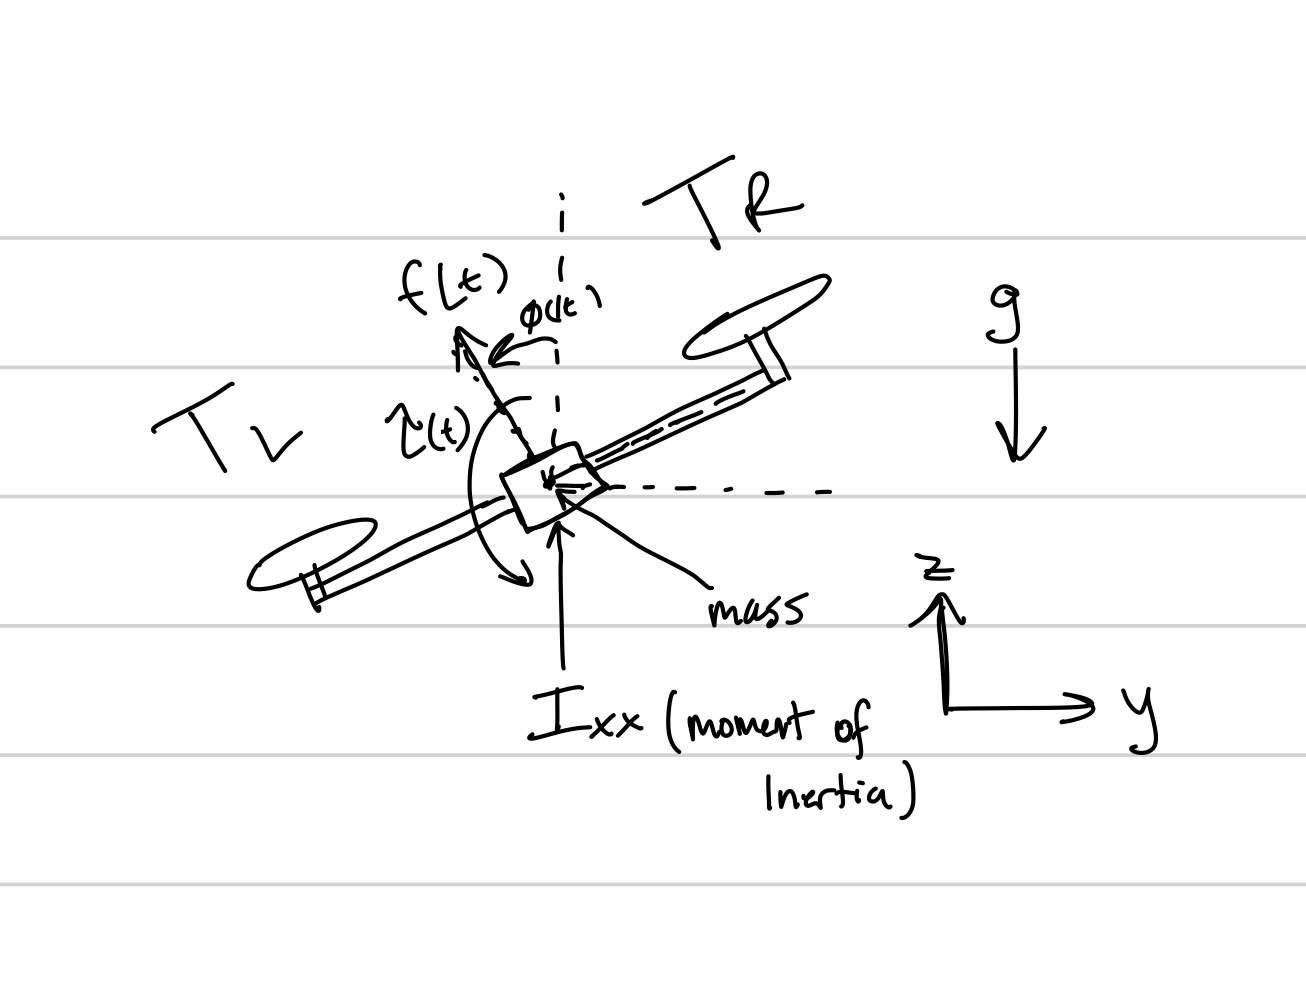 T_R
f(t)
φ(t)
g
T_L
τ(t)
mass
z
I_xx (moment of
Inertia)
y